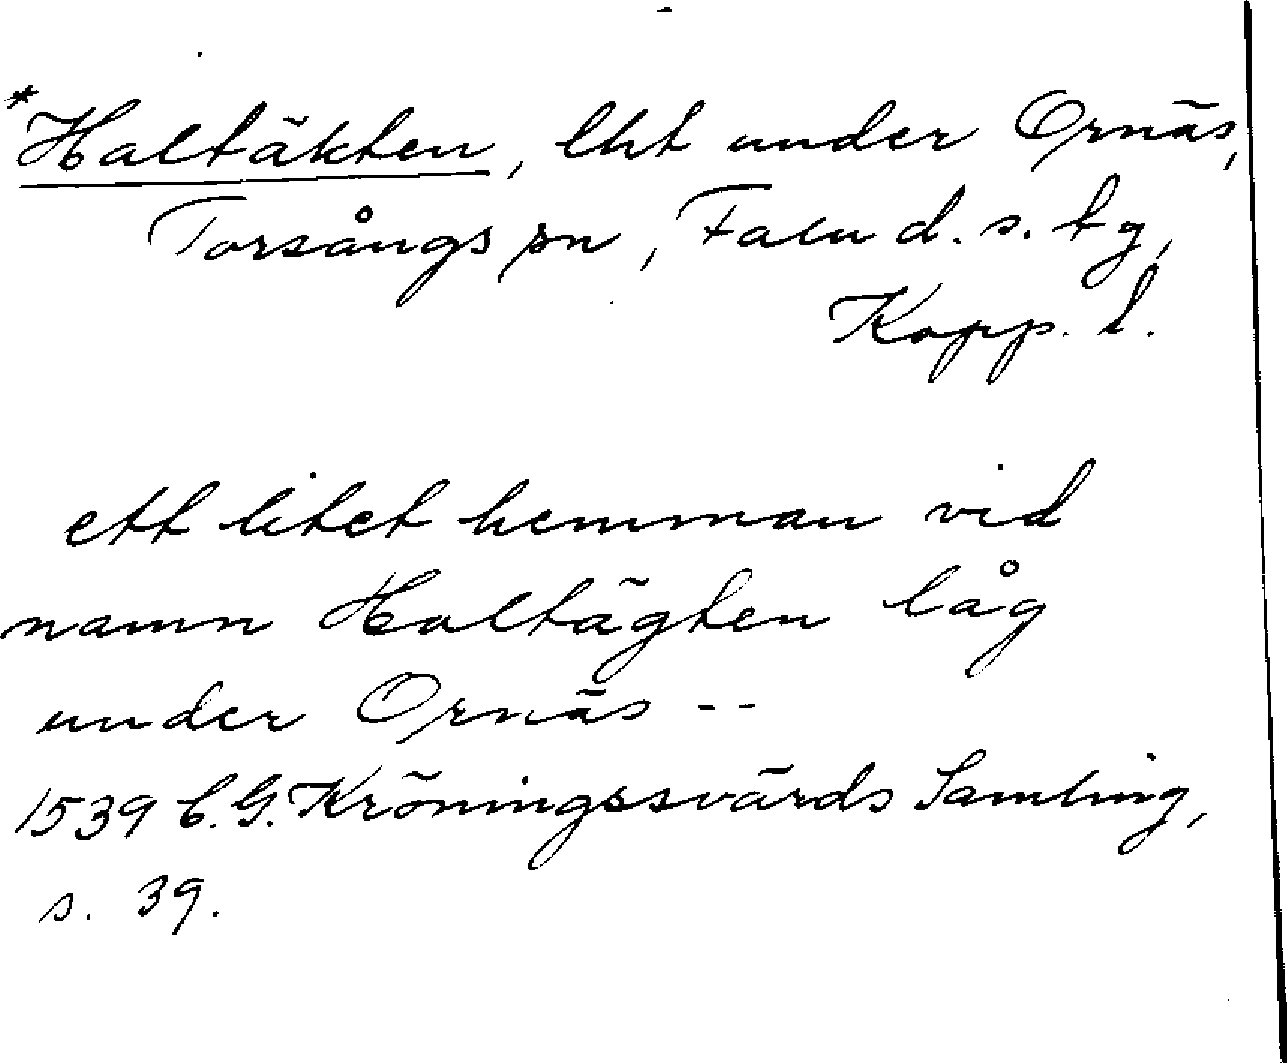 *Haltäkten, lht under Ornäs,
Torsångs sn, Falu d. s. tg,
Kopp. l.
ett litet hemman vid
namn Haltägten låg
under Ornäs --
1539 C.G. Kröningssvärds Samling,
s. 39.